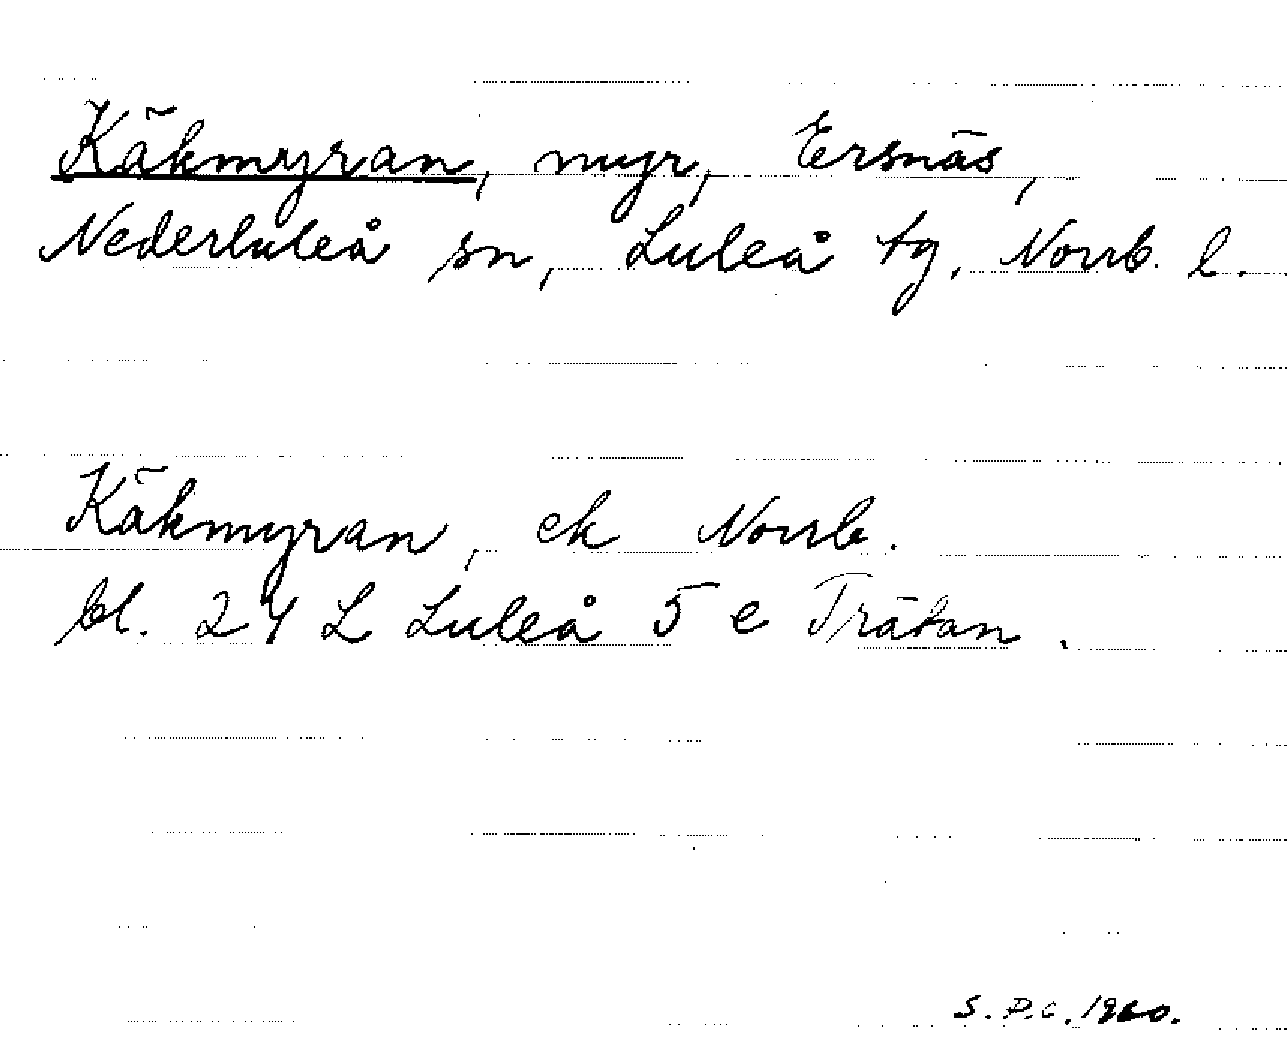 Käkmyran, myr, Ersnäs,
Nederluleå sn, Luleå tg, Norrb. l.
Käkmyran, ek Norrb.
bl. 24 L Luleå 5 e Trätan.
S.P.C. 1960.